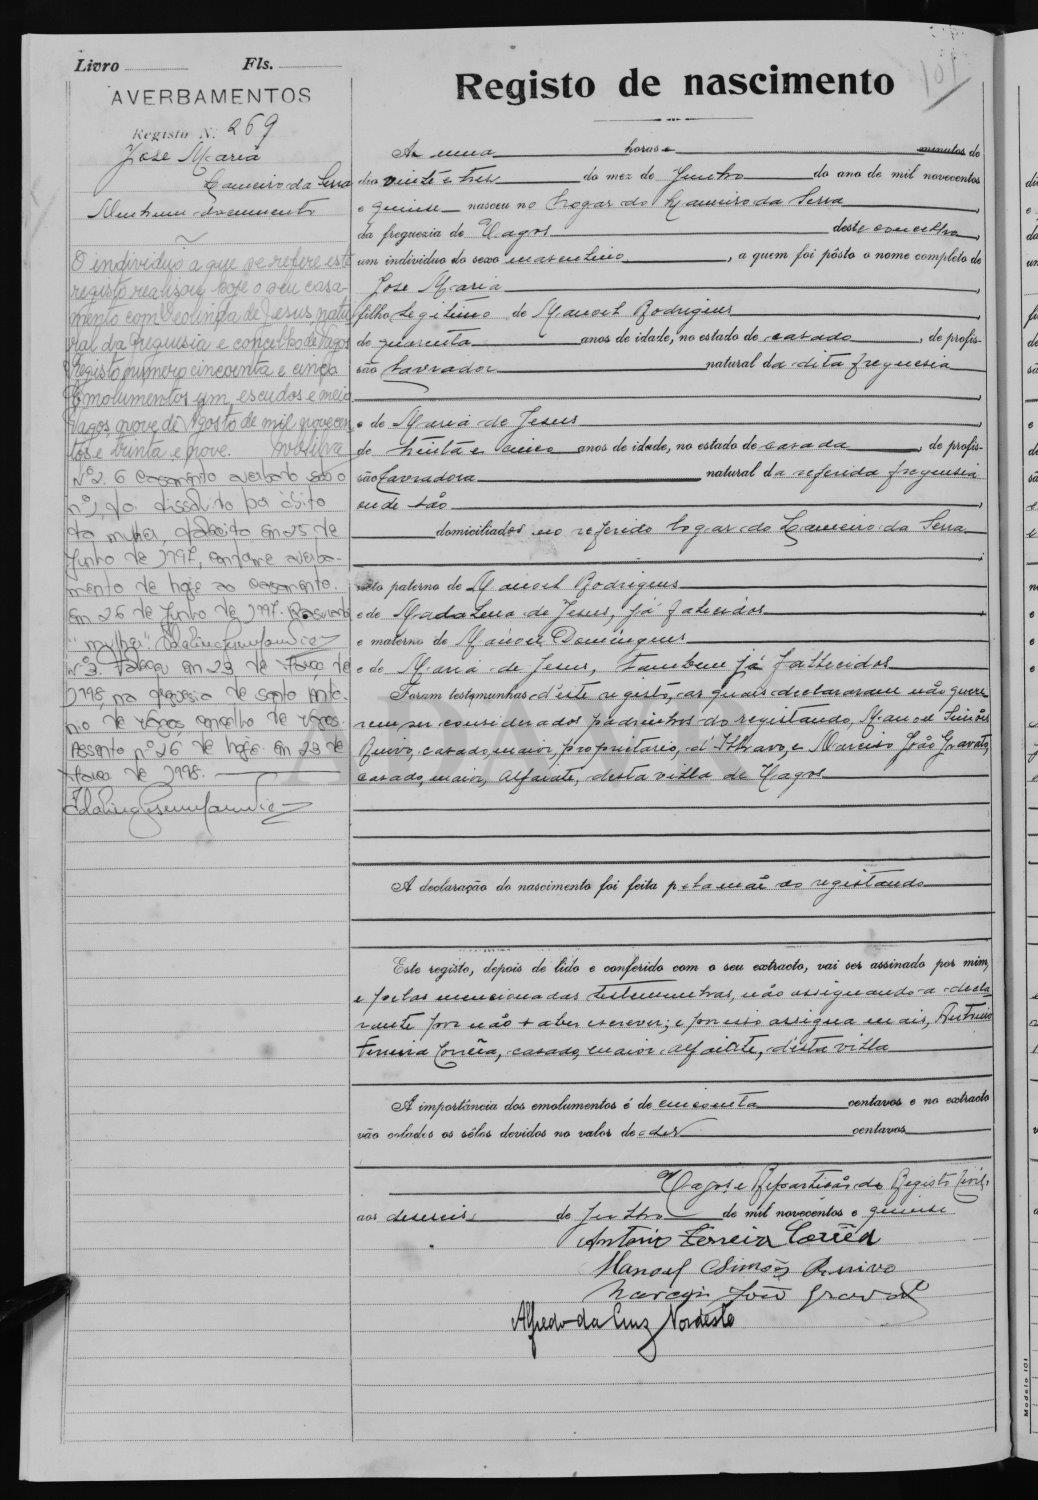 Livro Fls.
AVERBAMENTOS
Registo N.º 269
José Maria
Carneiro da Serra
Nenhum documento
O individuo a que se refere este
registo realisou hoje o seu casa-
mento com Deolinda de Jesus, natu-
ral da freguesia e concelho de Vagos
Registo numero cincoenta e cinco
Emolumentos um escudos e meio
Vagos, nove de Agosto de mil novecen-
tos e trinta e nove.
Nº 2. O casamento averbado sob o
nº 1, foi dissolvido por óbito
da mulher, falecida em 25 de
Junho de 1997, conforme averba-
mento de hoje ao casamento.
Em 26 de Junho de 1997.
"mulher"
Nº 3. Faleceu em 23 de Março de
1998, na freguesia de Santo Antó-
nio de Vagos, concelho de Vagos.
Assento nº 26, de hoje. Em 23 de
Março de 1998.
Registo de nascimento
101
A uma horas e minutos do
dia vinte e tres do mez de Junho do ano de mil novecentos
e quinse nasceu no logar do Carneiro da Serra
da freguezia de Vagos deste concelho,
um individuo do sexo masculino, a quem foi pôsto o nome completo de
José Maria
filho legitimo de Manoel Rodrigues
de quarenta anos de idade, no estado de casado, de profis-
são lavrador natural da dita freguesia
e de Maria de Jesus
de trinta e cinco anos de idade, no estado de casada, de profis-
são lavradora natural da referida freguesia
onde são
domiciliados no referido logar do Carneiro da Serra
néto paterno de Manoel Rodrigues
e de Madalena de Jesus, já falecidos
e materno de Manoel Domingues
e de Maria de Jesus, tambem já fallecidos
Foram testemunhas d'este registo, as quaes declararam não quere-
rem ser considerados padrinhos do registando, Manoel Simões
Ruivo, casado, maior, proprietario, d'Ilhavo, e Narciso João Gravato,
casado, maior, alfaiate, desta villa de Vagos
ADAVR
A declaração do nascimento foi feita pela mãe do registando
Este registo, depois de lido e conferido com o seu extracto, vai ser assinado por mim,
e pelas mencionadas testemunhas, não assignando a decla-
rante por não saber escrever; e por isso assigna mais, Antonio
Ferreira Corrêa, casado, maior, alfaiate, d'esta villa
A importância dos emolumentos é de cincoenta centavos e no extracto
vão colados os sêlos devidos no valor de dez centavos
Vagos e Repartição do Registo Civil,
aos deseseis de Julho de mil novecentos e quinse
Antonio Ferreira Corrêa
Manoel Simões Ruivo
Narciso João Gravato
Alfredo da Cruz Nordeste
Modelo 101